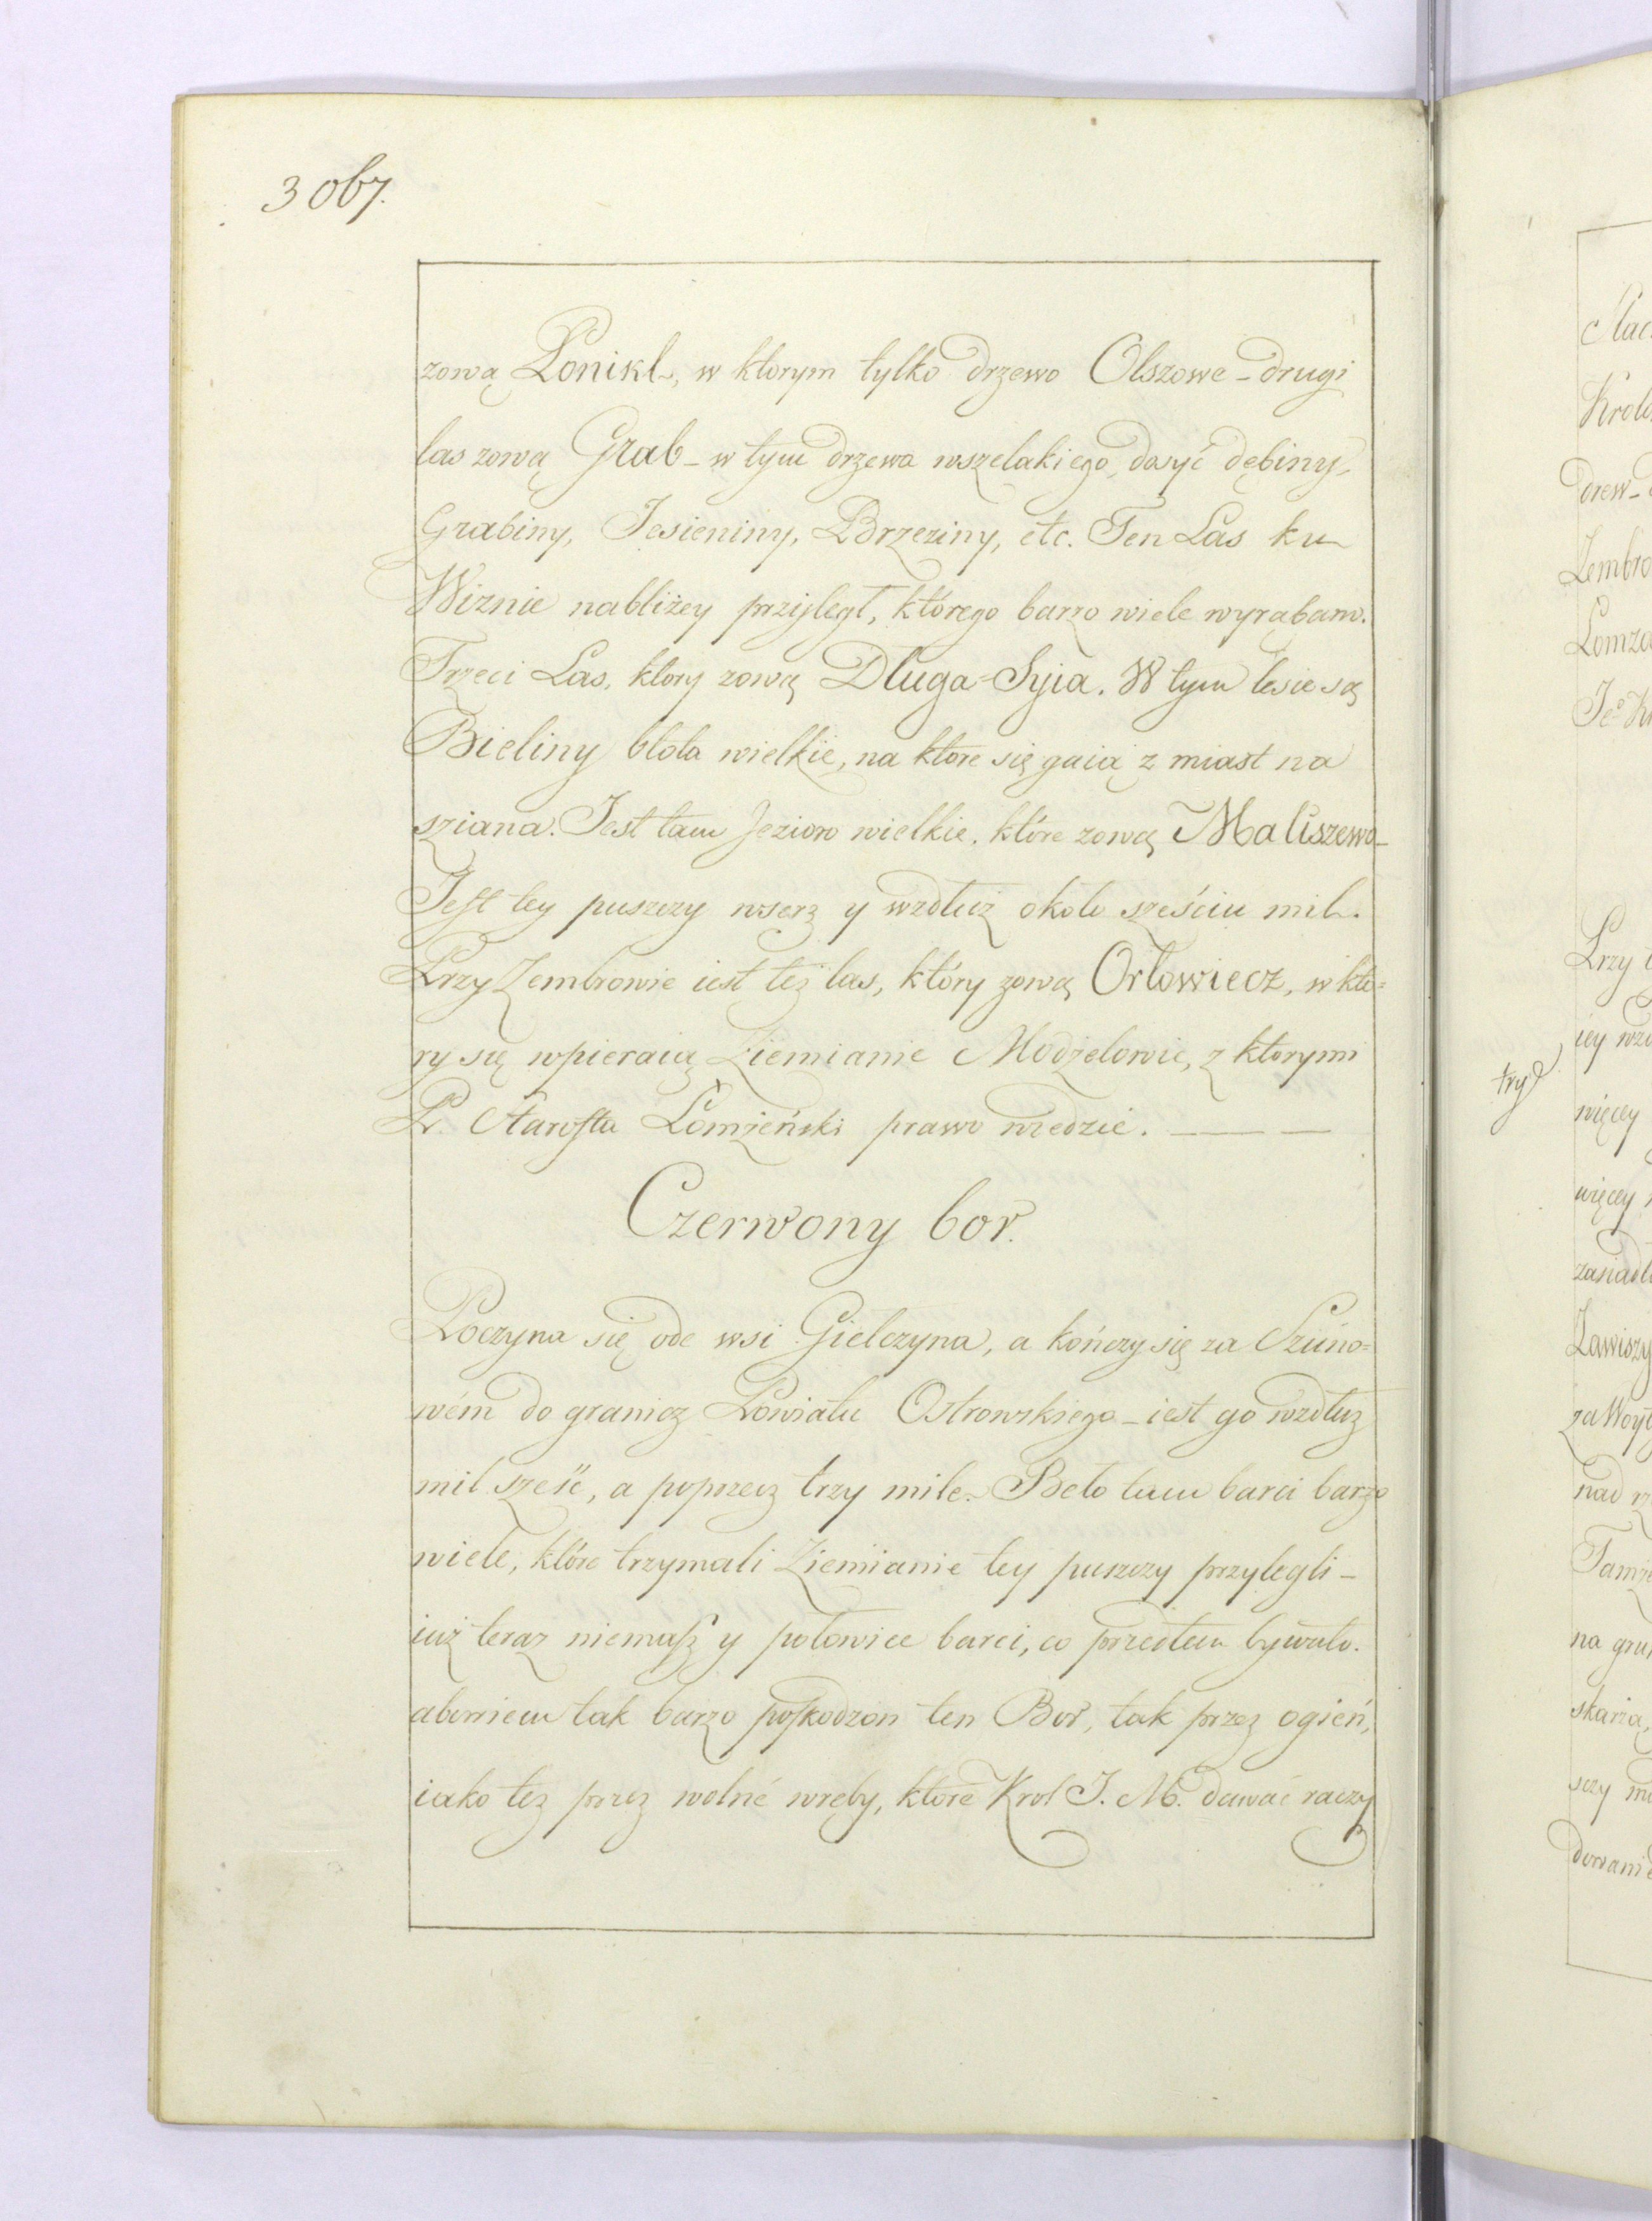 3067.
zową Ponikl, w ktorym tylko drzewo Olszowe - drugi
las zową Grab - w tym drzewa wszelakiego, dosyć dębiny,
Grabiny, Jesieniny, Brzeziny, etc. Ten Las ku
Wiznie nabliżey przyległ, którego barzo wiele wyrąbano.
Trzeci Las, ktory zową Dluga=Syia. W tym lesie są
Bieliny blota wielkie, na ktore się gaią z miast na
sziana. Jest tam Jezioro wielkie, które zową Maliszewo_
Jest tey puszczy wserz y wzdłuż około sześciu mil.
Przy Zembrowie iest też las, który zową Orłowiecz, w kto=
ry się wpieraią Ziemianie Modzelowie, z ktorymi
P. Starosta Lomżeński prawo wiedzie. — — —
Czerwony bor.
Poczyna się ode wsi Giełczyna, a kończy się za
wém do granicz Powiatu Ostrowskiego - iest go wzdłuż
mil sześć, a poprzecz trzy mile. Beło tam barci barzo
wiele, które trzymali Ziemianie tey puszczy przylegli -
iuż teraz niemasz y połowice barci, co przedtem bywało.
abowiem tak barzo poskodzon ten Bor, tak przez ogień,
iako tez przez wolné wręby, które Krol J. M. dawać raczy
Krol
drew-
Zembro
Lomze
Przy
iey wzd
więcey
więcey
zasiadł
Zawiszy
nad rz
Tamże
na grun
skarżą,
sczy
dowani